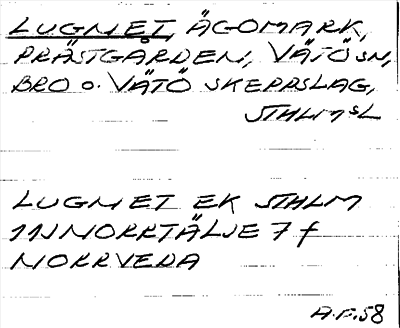 LUGNET, ÄGOMARK,
PRÄSTGÅRDEN, VÄTÖ SN,
BRO o. VÄTÖ SKEPPSLAG,
STHLMS L
LUGNET EK STHLM
11J NORRTÄLJE 7 f
NORRVEDA
A.F. 58